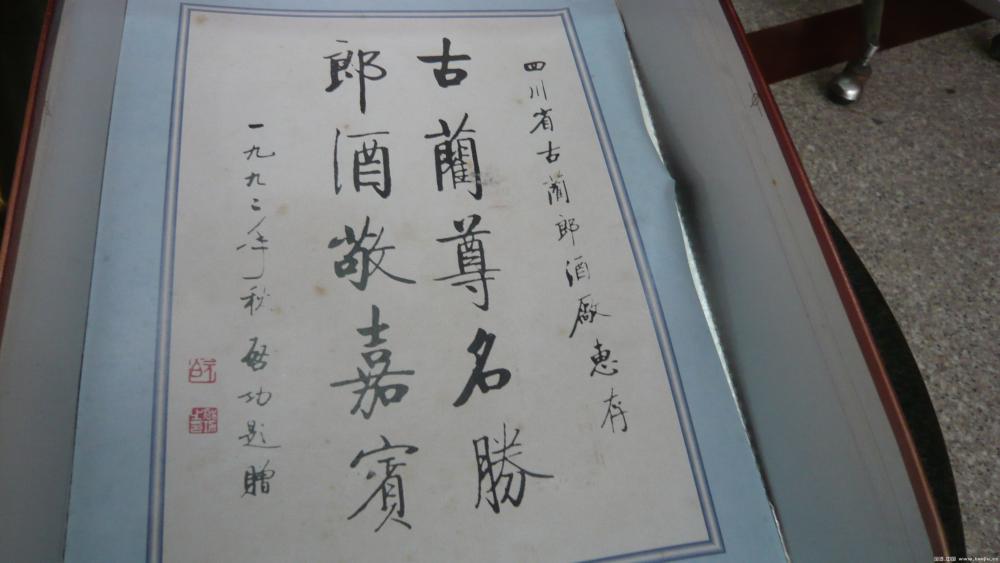 四川省古蔺郎酒厰惠存
古蔺尊名勝
郎酒敬嘉賓
一九九二年秋 啓功题贈